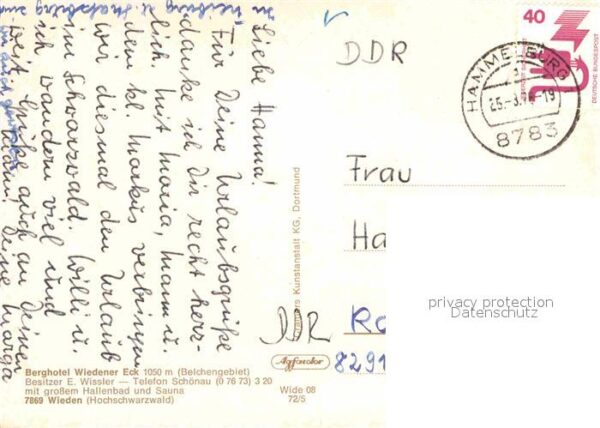 in Freiburg u.
Liebe Hanna!
Für Deine Urlaubsgrüße
danke ich Dir recht herz-
lich. Mit Maria, Mann u.
dem kl. Markus verbringen
wir diesmal den Urlaub
im Schwarzwald. Willi u.
ich wandern viel und
weit. Grüße auch an Deinen
Mann! Deine Marga
wir auch
DDR
40
DEUTSCHE BUNDESPOST
HAMMELBURG
8783
Frau
Ha
DDR
Ro
8291
privacy protection
Datenschutz
Kunstanstalt KG, Dortmund
Agfacolor
Wide 08
72/5
Berghotel Wiedener Eck 1050 m (Belchengebiet)
Besitzer E. Wissler — Telefon Schönau (0 76 73) 3 20
mit großem Hallenbad und Sauna
7869 Wieden (Hochschwarzwald)